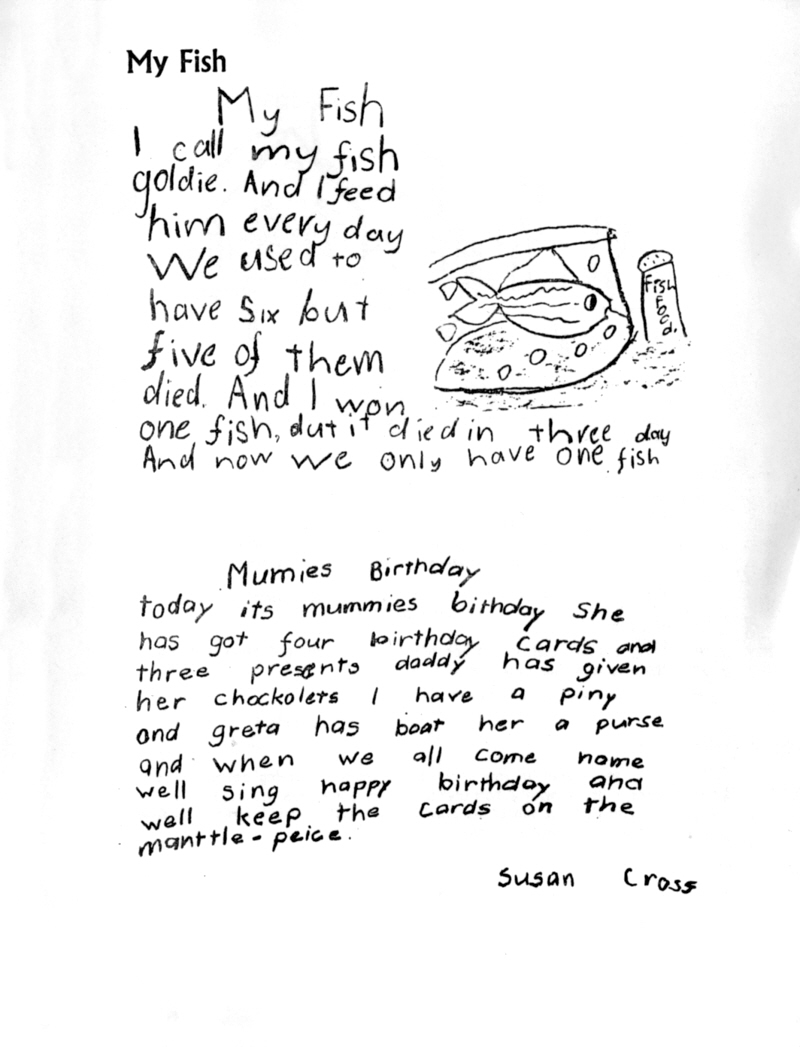 My Fish
My Fish
I call my fish
goldie. And I feed
him every day
We used to
have six but
five of them
died. And I won
one fish, dut it died in three day
And now we only have one fish
Fish
Food.
Mumies Birthday
today its mummies bithday She
has got four birthday cards and
three presents daddy has given
her chockolets I have a piny
and greta has boat her a purse
and when we all come home
well sing happy birthday and
well keep the cards on the
manttle-peice.
Susan Cross